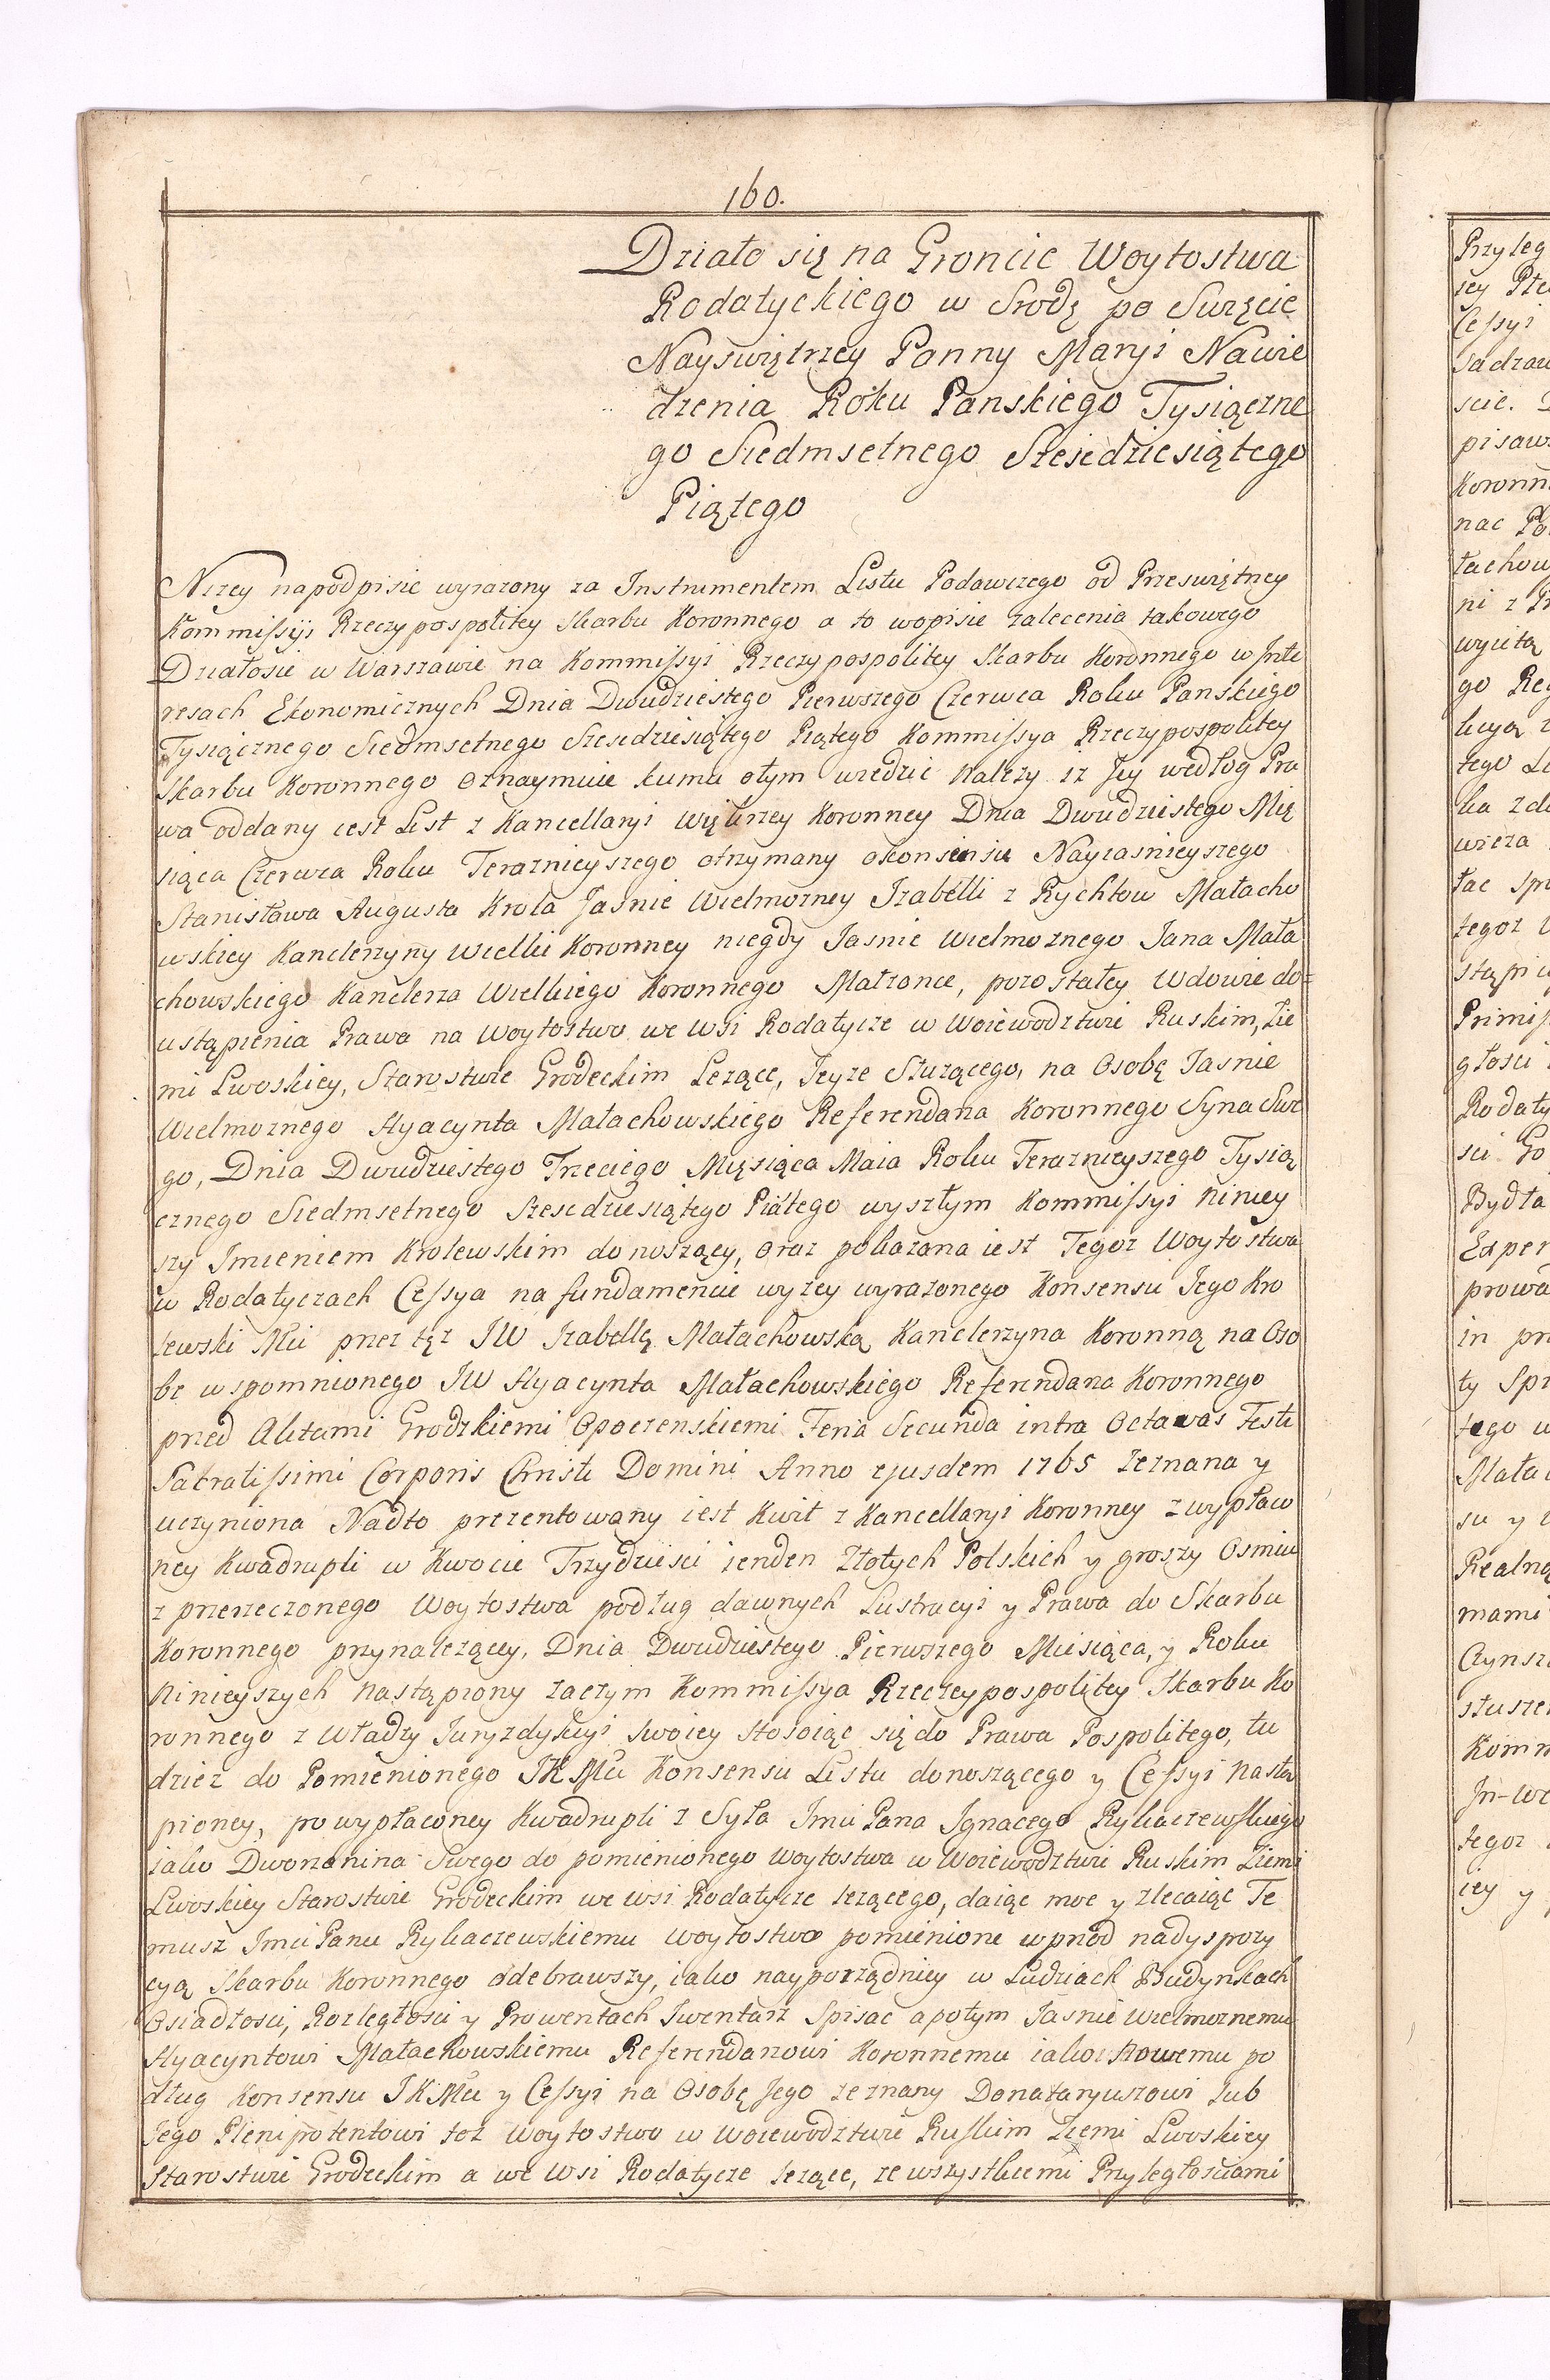 160.
Działo się na Groncie Woytostwa
Rodatyckiego w Srodę po Swięcie
Nayswiętrzey Panny Maryi Nawie
dzenia Roku Panskiego Tysiączne
go Siedmsetnego Szescdziesiątego
Piątego
Nizey napodpisie wyrazony za Instrumentem Listu Podawczego od Przeswiętney
Kommissyi Rzeczypospolitey Skarbu Koronnego a to wopisie zalecenia takowego
Działosie w Warszawie na Kommissyi Rzeczypospolitey Skarbu Koronnego w Inte
resach Ekonomicznych Dnia Dwudziestego Pierwszego Czerwca Roku Panskiego
Tysiącznego Siedmsetnego Szescdziesiątego Piątego Kommissya Rzeczypospolitey
Skarbu Koronnego oznaymuie kumu otym wiedzic nalezy iz Jey według Pra
wa oddany iest List z Kancellaryi Więkrzey Koronney Dnia Dwudziestego Mię
siąca Czerwca Roku Teraznieyszego otrzymany okonsensie Nayiasnieyszego
Stanisława Augusta Krola Jasnie Wielmozney Izabelli z Rychłow Małacho
wskiey Kanclerzyny Wielkii Koronney niegdy Jasnie Wielmoznego Jana Mała
chowskiego Kanclerza Wielkiego Koronnego Małzonce, pozostałey Wdowie do=
ustąpienia Prawa na Woytostwo we Wsi Rodatycze w Woiewodztwie Ruskim, Zie
mi Lwoskiey, Starostwie Grodeckim Lezące, Jeyze Słuzącego, na Osobę Jasnie
Wielmoznego Hyacynta Małachowskiego Referendarza Koronnego Syna Swe
go, Dnia Dwudziestego Trzeciego Mięsiąca Maia Roku Teraznieyszego Tysią
cznego Siedmsetnego Szescdziesiątego Piątego wyszłym Kommissyi niniey
szy Imieniem Krolewskim donoszący, oraz pokazana iest Tegoz Woytostwa
w Rodatyczach Cessya na fundamencie wyzey wyrazonego Konsensu Jego Kro
lewski Mci przez tęz JW Izabellę Małachowską Kanclerzyna Koronną na Oso
be wspomnionego JW Hyacynta Małachowskiego Referendarza Koronnego
przed Aktami Grodzkiemi Opoczenskiemi Feria Secunda intra Octavas Festi
Sacratissimi Corporis Christi Domini Anno ejusdem 1765 zeznana y
uczyniona Nadto prezentowany iest Kwit z Kancellaryi Koronney z wypław
ney Kwadrupli w Kwocie Trzydziesci ienden Złotych Polskich y groszy Osmiu
z przerzeczonego Woytostwa podług dawnych Lustracyi y Prawa do Skarbu
Koronnego przynalezącey, Dnia Dwudziestego Pierwszego Miesiąca, y Roku
ninieyszych nastąpiony zaczym Kommissya Rzeczeypospolitey Skarbu Ko
ronnego z Władzy Juryzdykcyi swoiey stosoiąc się do Prawa Pospolitego, tu
dziez do Pomienionego JKMci Konsensu Listu donoszącego y Cessyi nastą
pioney, po wypłaconey Kwadrupli z Syła Imci Pana Ignacego Rykaczewskiego
iako Dworzanina Swego do pomienionego woytostwa w Woiewodztwie Ruskim Ziemi
Lwoskiey Starostwie Grodeckim we wsi Rodatycze lezącego, daiąc moc y zlecaiąc Te
musz Imci Panu Rykaczewskiemu woytostwo pomienione wprzod nadyspozy
cyą Skarbu Koronnego odebrawszy, iako nayporządniey w Ludziach Budynkach
Osiadłosci, Rozległosci y Prowentach Inwentarz Spisac a potym Jasnie Wielmoznemu
Hyacyntowi Małachowskiemu Referendarzowi Koronnemu iako nowemu po
dług Konsensu JKMci y Cessyi na Osobę Jego zeznany Donataryuszowi lub
Jego Plenipotentowi toz Woytostwo w woiewodztwie Ruskim Ziemi Lwoskiey
Starostwie Grodeckim a we Wsi Rodatycze lezące, ze wszystkiemi Przyległosciami